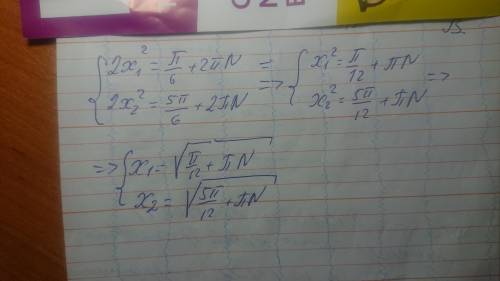 { 2x₁² = π/6 + 2πN => { x₁² = π/12 + πN =>
{ 2x₂² = 5π/6 + 2πN    { x₂² = 5π/12 + πN
=> { x₁ = √(π/12 + πN)
{ x₂ = √(5π/12 + πN)